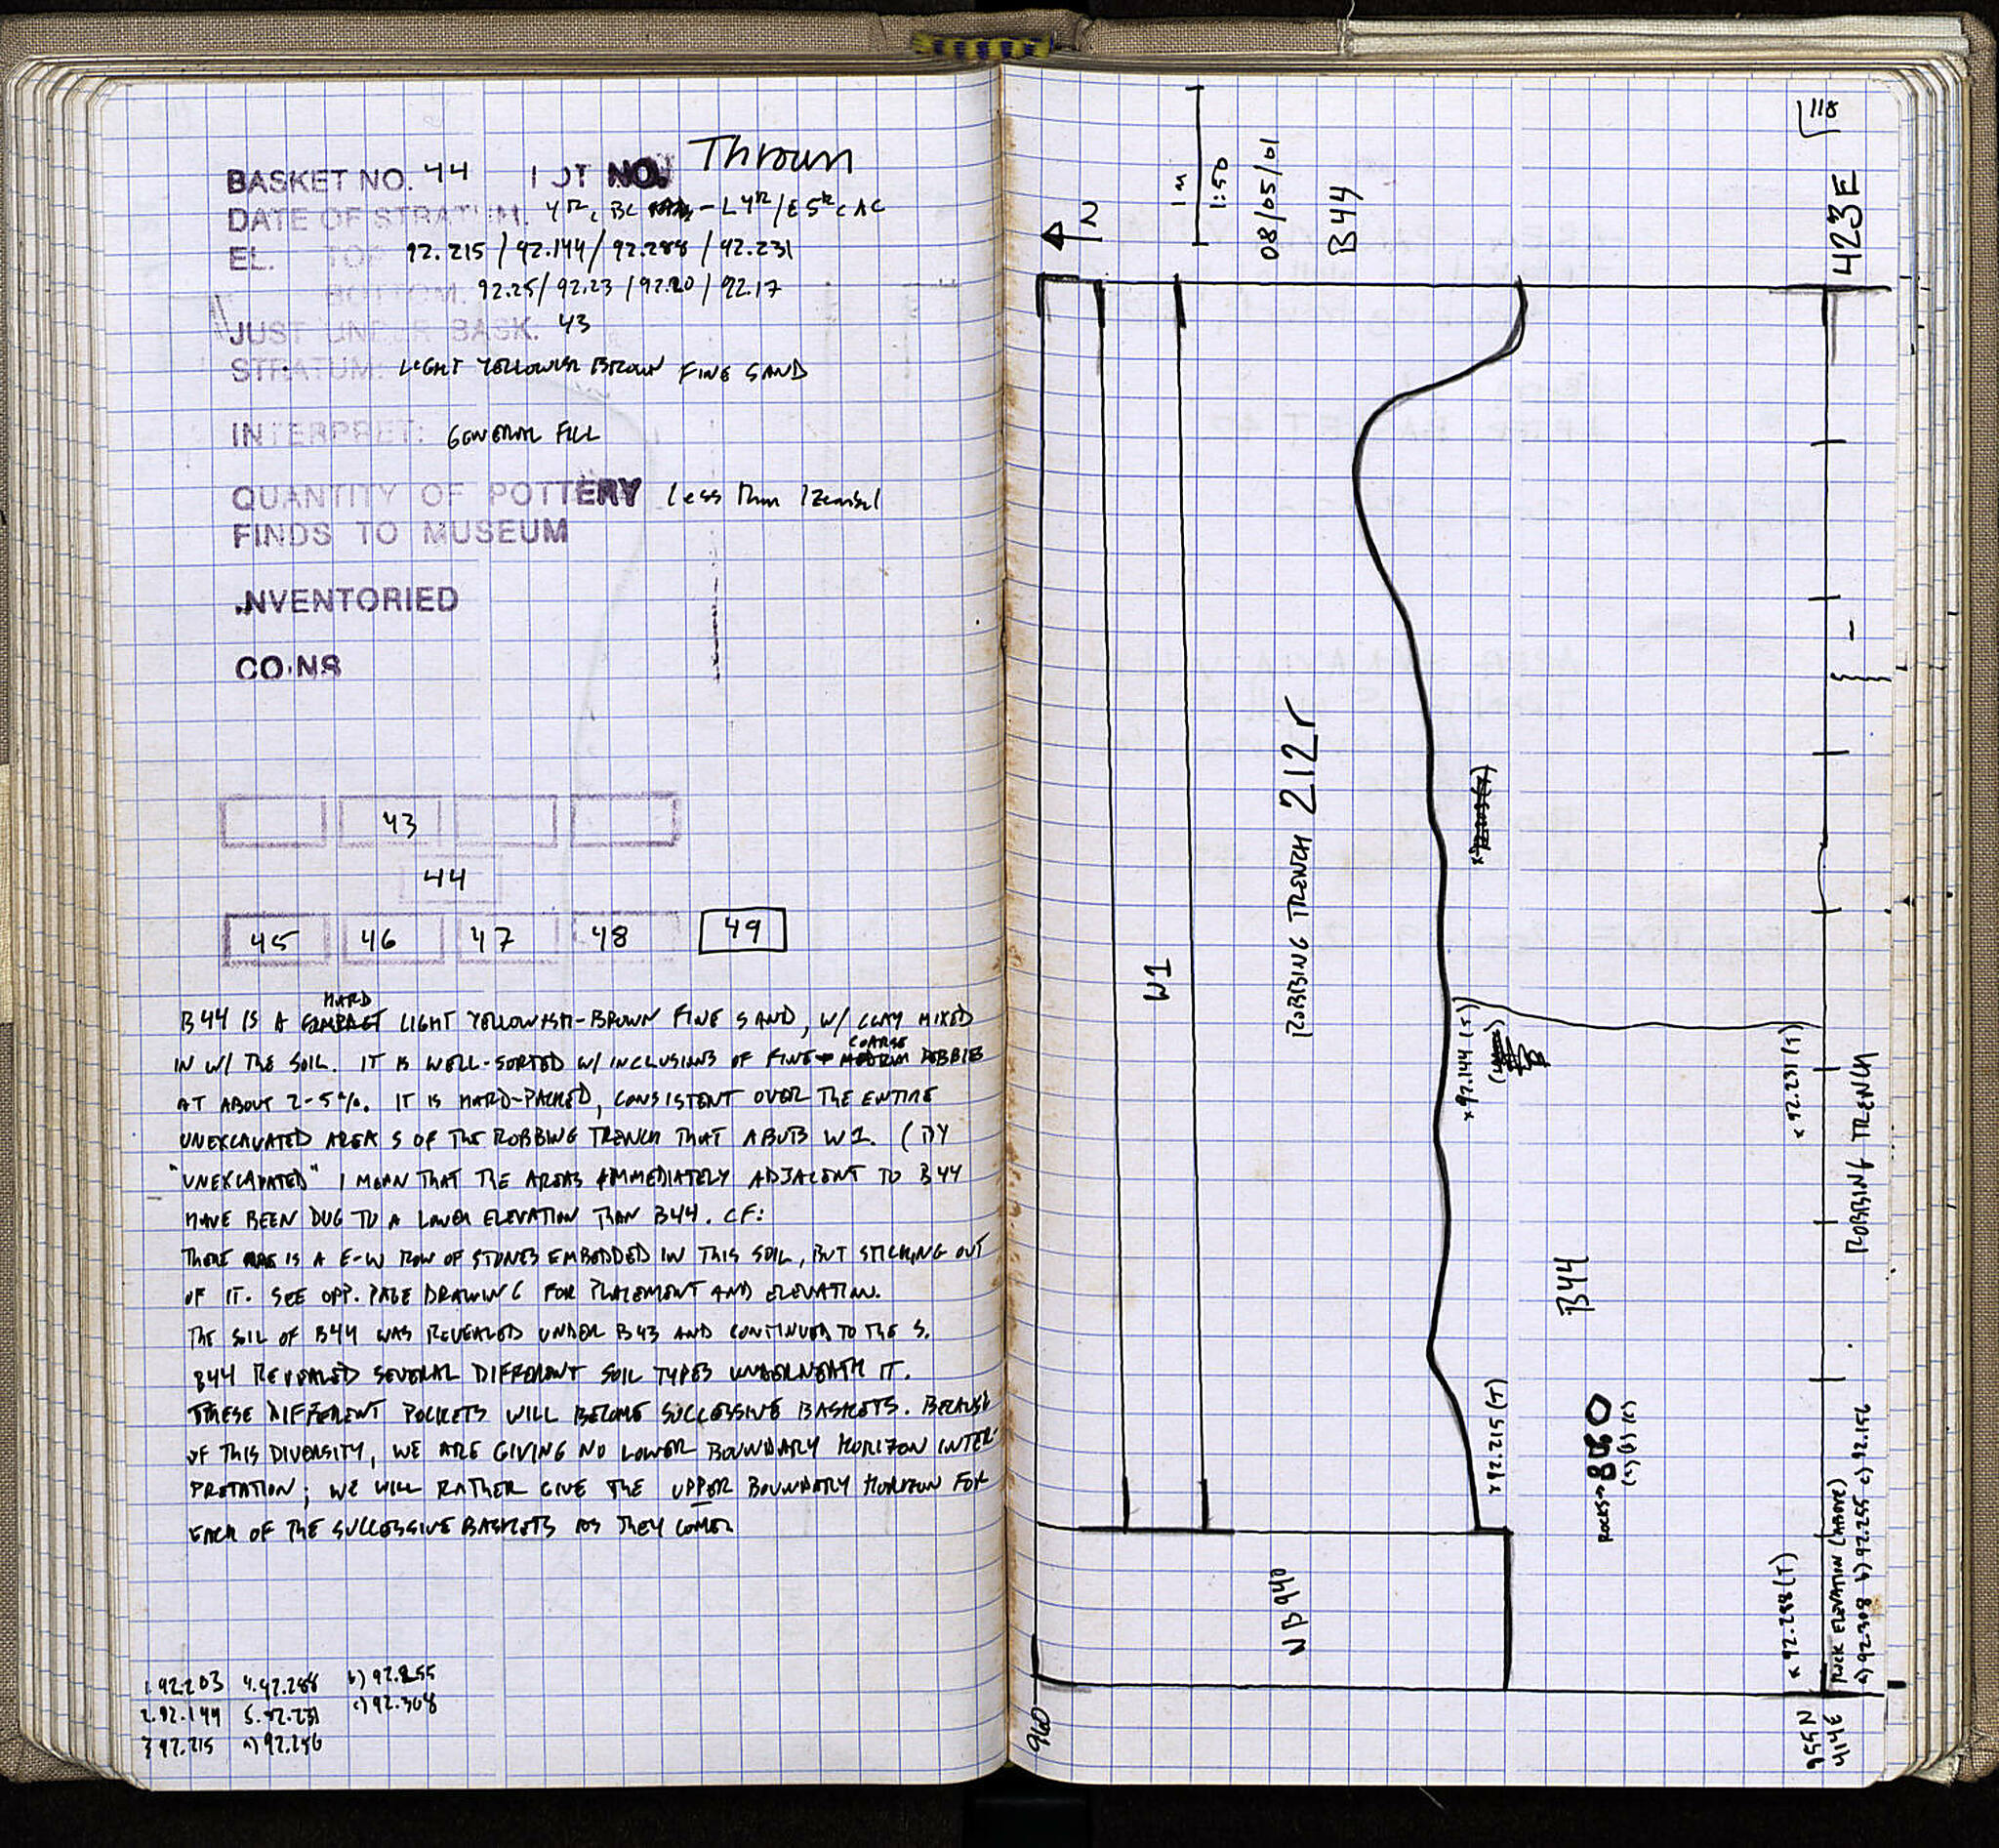 BASKET NO. 44 LOT NO. Thrown
DATE OF STRATUM.
EL. TOP 92.215 / 92.144 / 92.288 / 92.231
BOTTOM. 92.25 / 92.23 / 92.20 / 92.17
JUST UNDER BASK. 43
STRATUM: LIGHT YELLOWISH BROWN FINE SAND
INTERPRET: GENERAL FILL
QUANTITY OF POTTERY less than 1 zembil
FINDS TO MUSEUM
INVENTORIED
COINS
43
44
45 46 47 48 49
HARD
B44 IS A COMPACT LIGHT YELLOWISH-BROWN FINE SAND, W/ CLAY MIXED
COARSE
IN W/ THE SOIL. IT IS WELL-SORTED W/ INCLUSIONS OF FINE + MEDIUM PEBBLES
AT ABOUT 2-5%. IT IS HARD-PACKED, CONSISTENT OVER THE ENTIRE
UNEXCAVATED AREA S OF THE ROBBING TRENCH THAT ABUTS W1. (BY
"UNEXCAVATED" I MEAN THAT THE AREAS IMMEDIATELY ADJACENT TO B44
HAVE BEEN DUG TO A LOWER ELEVATION THAN B44. CF:
THERE IS A E-W ROW OF STONES EMBEDDED IN THIS SOIL, BUT STICKING OUT
OF IT. SEE OPP. PAGE DRAWING FOR PLACEMENT AND ELEVATION.
THE SOIL OF B44 WAS REVEALED UNDER B43 AND CONTINUED TO THE S.
B44 REVEALED SEVERAL DIFFERENT SOIL TYPES UNDERNEATH IT.
THESE DIFFERENT POCKETS WILL BECOME SUCCESSIVE BASKETS. BECAUSE
OF THIS DIVERSITY, WE ARE GIVING NO LOWER BOUNDARY HORIZON INTER-
PRETATION; WE WILL RATHER GIVE THE UPPER BOUNDARY HORIZON FOR
EACH OF THE SUCCESSIVE BASKETS AS THEY COME.
1. 92.203 4. 92.288 b) 92.255
2. 92.144 5. 92.231 c) 92.308
3 92.215 a) 92.256
118
1 m
1:50
08/05/01
B44
423E
W1
ROBBING TRENCH 212r
x 92.144 (5)
x 92.231 (T)
ROBBING TRENCH
B44
x 92.215 (T)
ROCKS→
(a) (b) (c)
NB940
x 92.288 (T)
ROCK ELEVATION (ABOVE)
a) 92.308 b) 92.255 c) 92.156
960
955N
414E